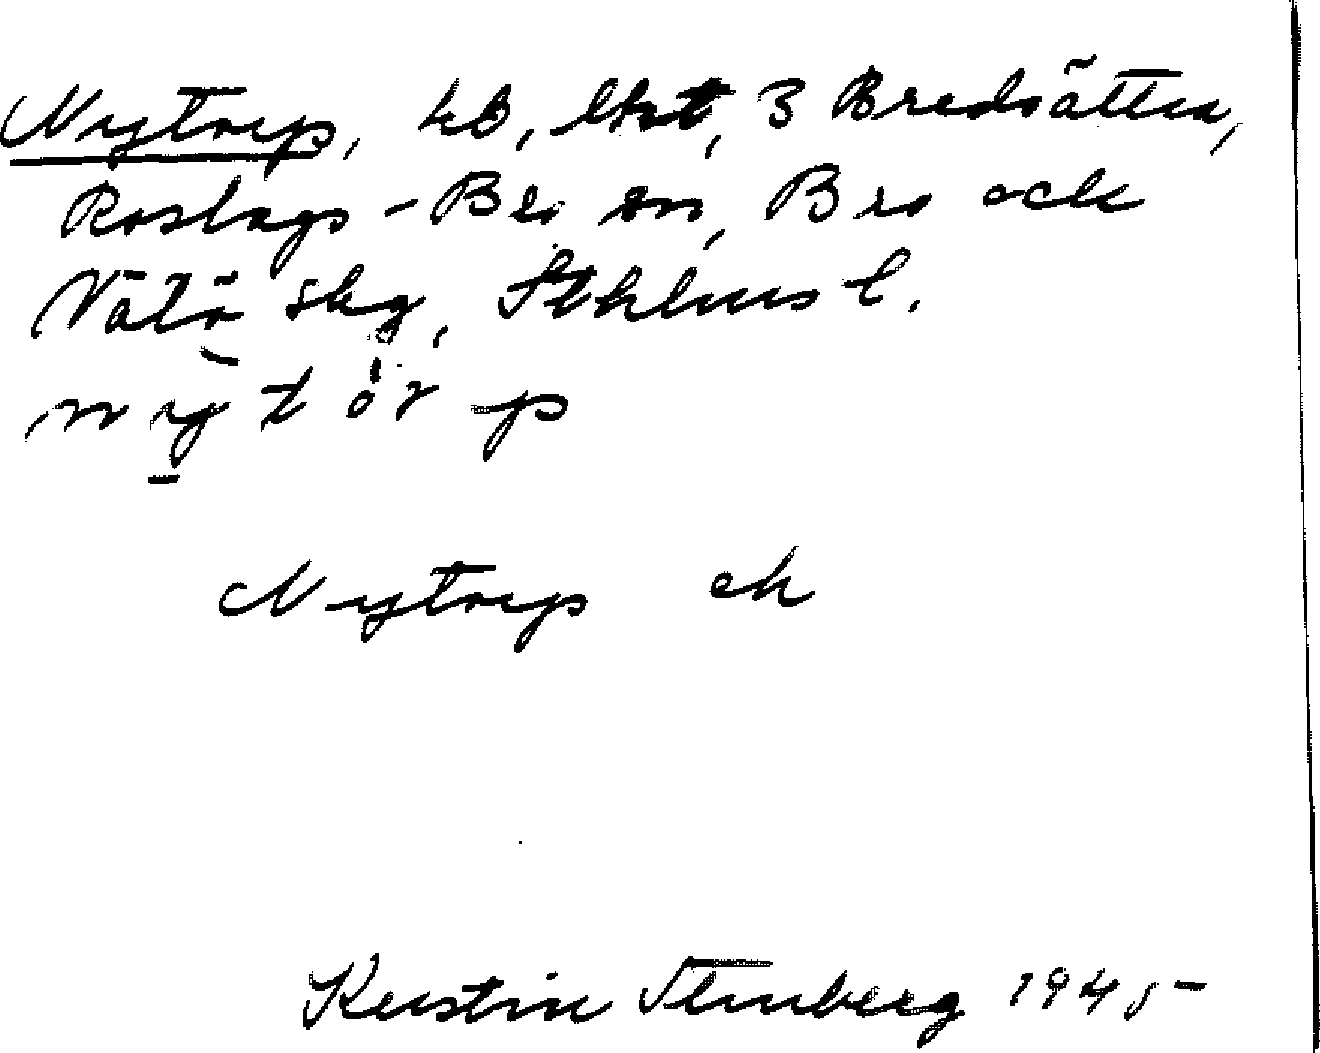 Nytorp, hb, lht, 3 Bredsätra,
Roslags-Bro sn, Bro och
Vätö skg, Sthlms l.
nỳtȯrp
Nytorp ek
Kerstin Stenberg 1945